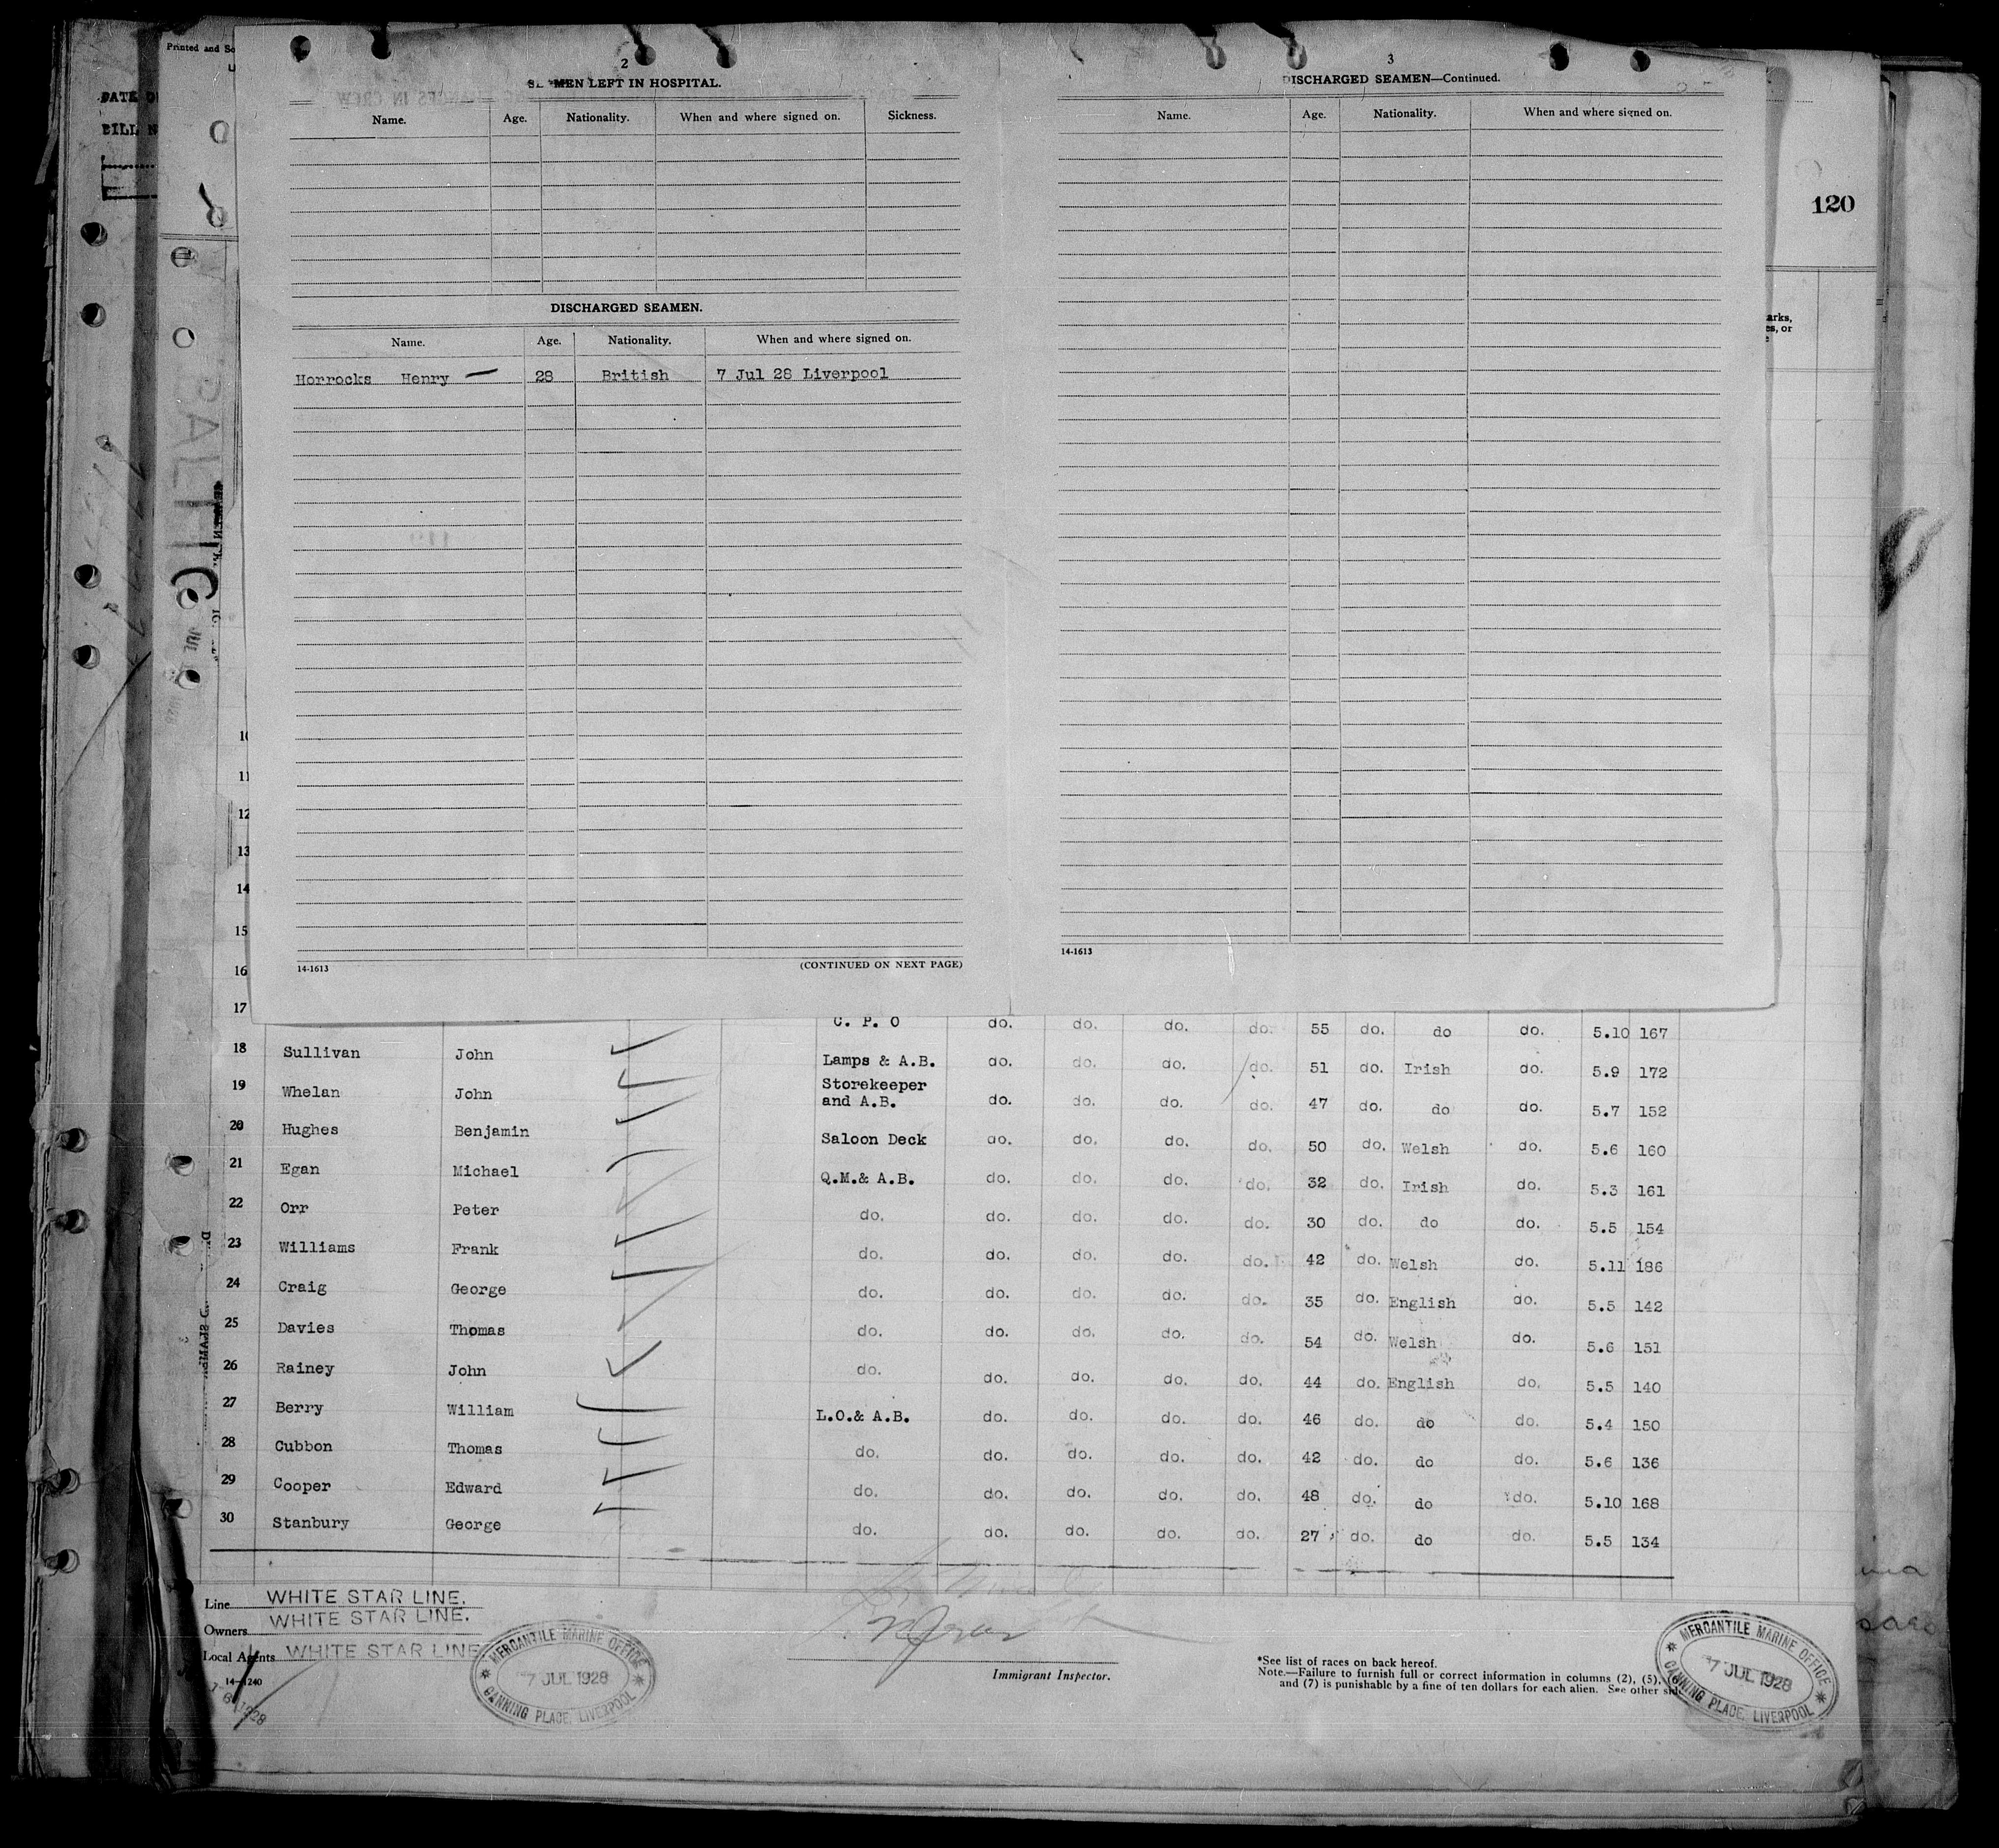 Printed and So
DATE O
BILL N
2
SEAMEN LEFT IN HOSPITAL.
Name. Age. Nationality. When and where signed on. Sickness.
DISCHARGED SEAMEN.
Name. Age. Nationality. When and where signed on.
Horrocks Henry — 28 British 7 Jul 28 Liverpool
14-1613 (CONTINUED ON NEXT PAGE)
3
DISCHARGED SEAMEN—Continued.
Name. Age. Nationality. When and where signed on.
14-1613
120
arks,
es, or
BALTIC
10
11
12
13
14
15
16
17 C. P. O do. do. do. do. 55 do. do do. 5.10 167
18 Sullivan John Lamps & A.B. do. do. do. do. 51 do. Irish do. 5.9 172
19 Whelan John Storekeeper
and A.B. do. do. do. do. 47 do. do do. 5.7 152
20 Hughes Benjamin Saloon Deck do. do. do. do. 50 do. Welsh do. 5.6 160
21 Egan Michael Q.M.& A.B. do. do. do. do. 32 do. Irish do. 5.3 161
22 Orr Peter do. do. do. do. do. 30 do. do do. 5.5 154
23 Williams Frank do. do. do. do. do. 42 do. Welsh do. 5.11 186
24 Craig George do. do. do. do. do. 35 do. English do. 5.5 142
25 Davies Thomas do. do. do. do. do. 54 do. Welsh do. 5.6 151
26 Rainey John do. do. do. do. do. 44 do. English do. 5.5 140
27 Berry William L.O.& A.B. do. do. do. do. 46 do. do do. 5.4 150
28 Cubbon Thomas do. do. do. do. do. 42 do. do do. 5.6 136
29 Cooper Edward do. do. do. do. do. 48 do. do do. 5.10 168
30 Stanbury George do. do. do. do. do. 27 do. do do. 5.5 134
Line WHITE STAR LINE.
Owners WHITE STAR LINE.
Local Agents WHITE STAR LINE
14-1240
MERCANTILE MARINE OFFICE
7 JUL 1928
CANNING PLACE, LIVERPOOL
Immigrant Inspector.
*See list of races on back hereof.
Note.—Failure to furnish full or correct information in columns (2), (5),
and (7) is punishable by a fine of ten dollars for each alien. See other
MERCANTILE MARINE OFFICE
7 JUL 1928
CANNING PLACE, LIVERPOOL